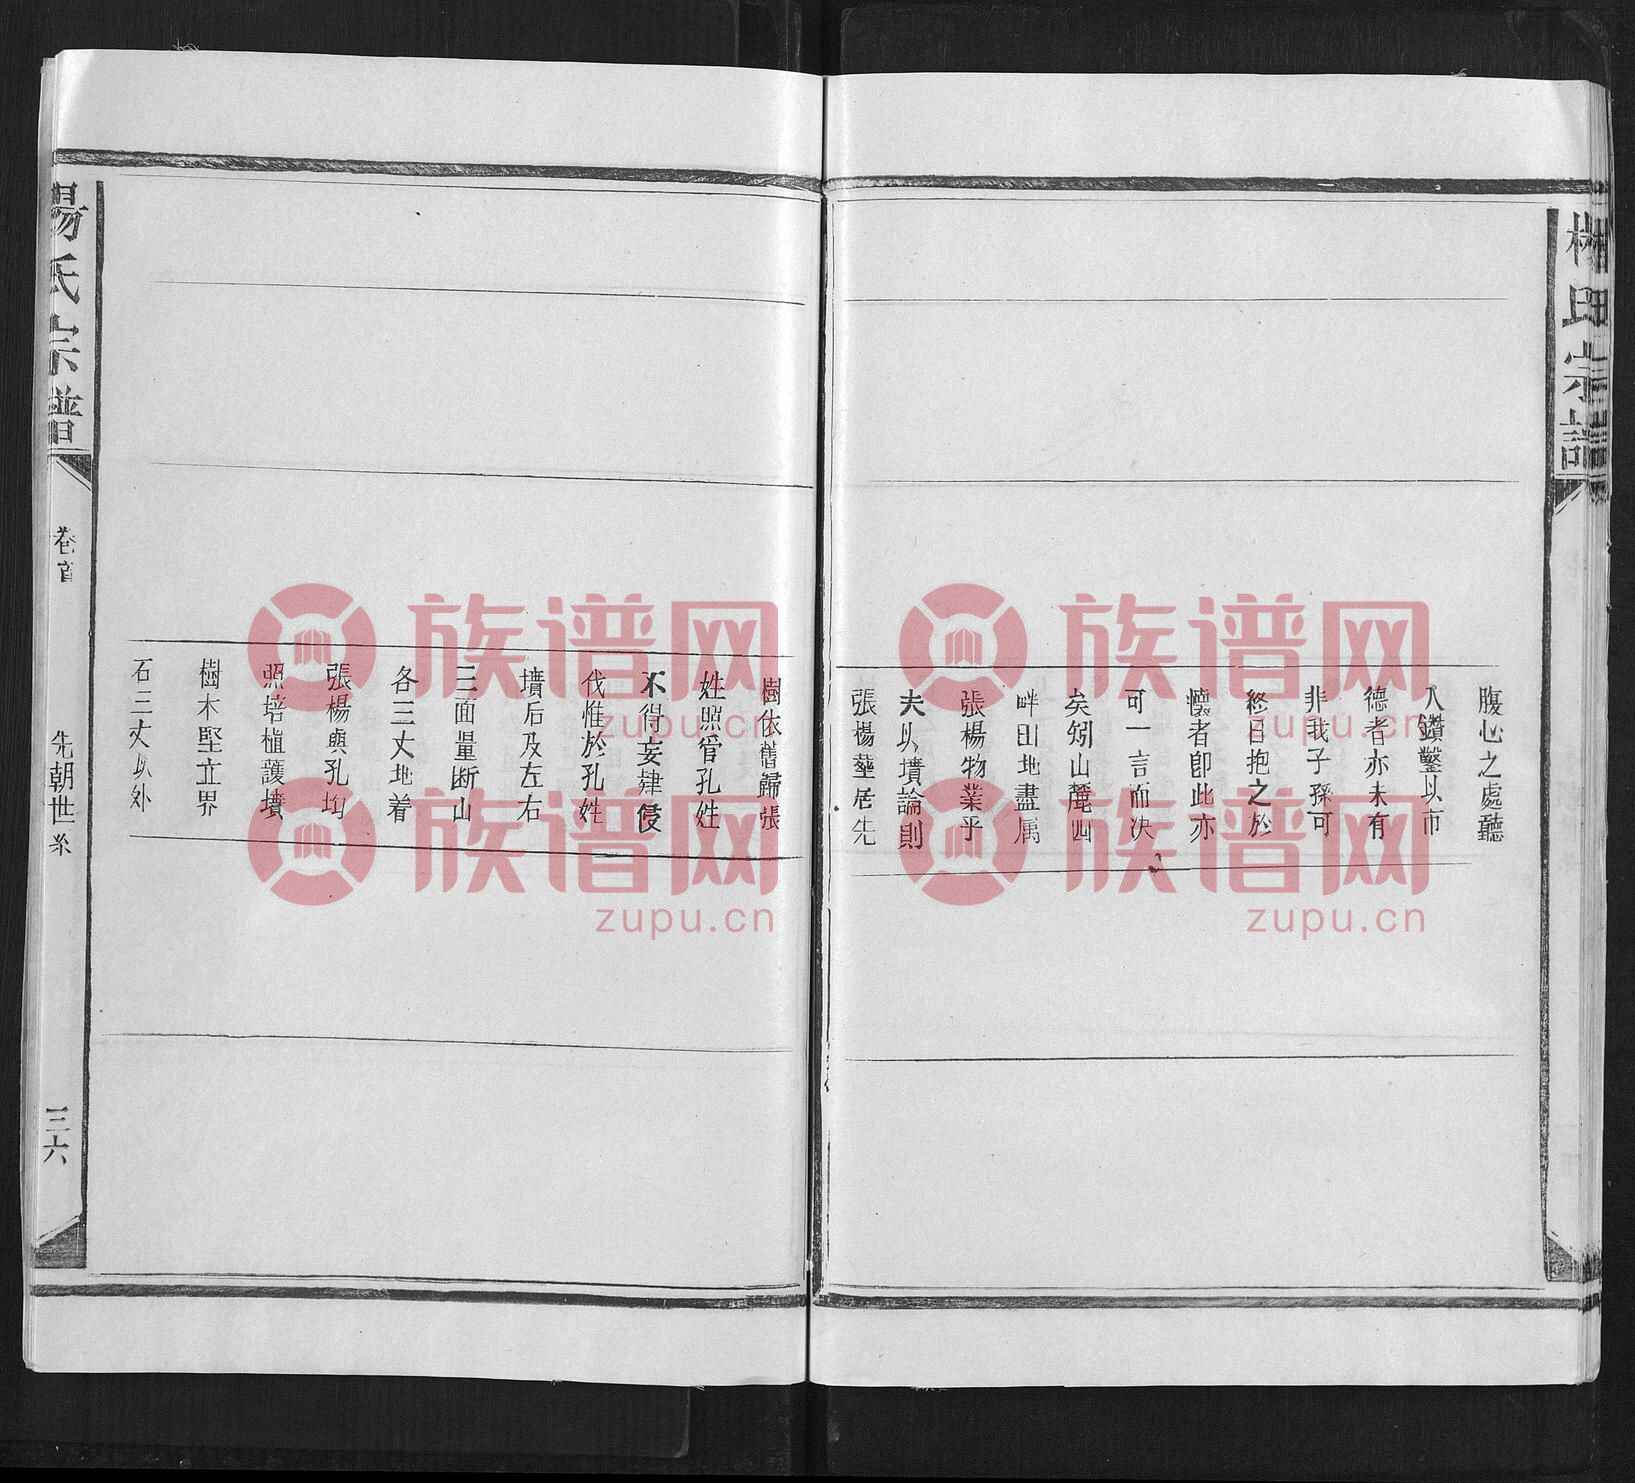 楊氏宗譜
腹心之處聽
人鑽鑿以市
德者亦未有
非我子孫可
終日抱之於
懷者即此亦
可一言而决
矣矧山麓四
畔田地盡属
張楊物業乎
夫以墳論則
張楊塋居先
樹依舊歸張
姓照管孔姓
不得妄肆侵
伐惟於孔姓
墳后及左右
三面量断山
各三丈地着
張楊與孔均
照培植護墳
樹木堅立界
石三丈以外
楊氏宗譜
卷首
先朝世系
三六
族谱网
族谱网
zupu.cn
族谱网
族谱网
zupu.cn